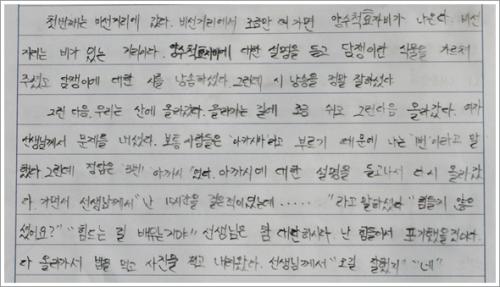 첫번째는 비선거리에 갔다. 비선거리에서 조금만 더 가면 양수척효자비가 나온다. 비선
거리는 비가 있는 거리이다. 양수척효자비에 대한 설명을 듣고 담쟁이란 식물을 가르쳐
주셨고 담쟁이에 대한 시를 낭송하셨다. 그런데 시 낭송을 정말 잘하셨다
그런 다음, 우리는 산에 올라갔다. 올라가는 길에 조금 쉬고 그런다음 올라갔다. 여기
선생님께서 문제를 내셨다. 보통 사람들은 '아카시아'라고 부르기 때문에 나는 '1번'이라고 말
했다 그런데 정답은 '2번' 아까시 였다. 아까시에 대한 설명을 듣고나서 다시 올라갔
다. 가면서 선생님께서 "난 15시간을 걸은적이있는데 ......" "라고 말하셨다 "힘들지 않으
셨어요?" "힘드는 걸 배우는거야" 선생님은 참 대단하시다. 난 힘들어서 포기했을것이다.
다 올라가서 밥을 먹고 사진을 찍고 내려왔다. 선생님께서 "오길 잘했지" "네"